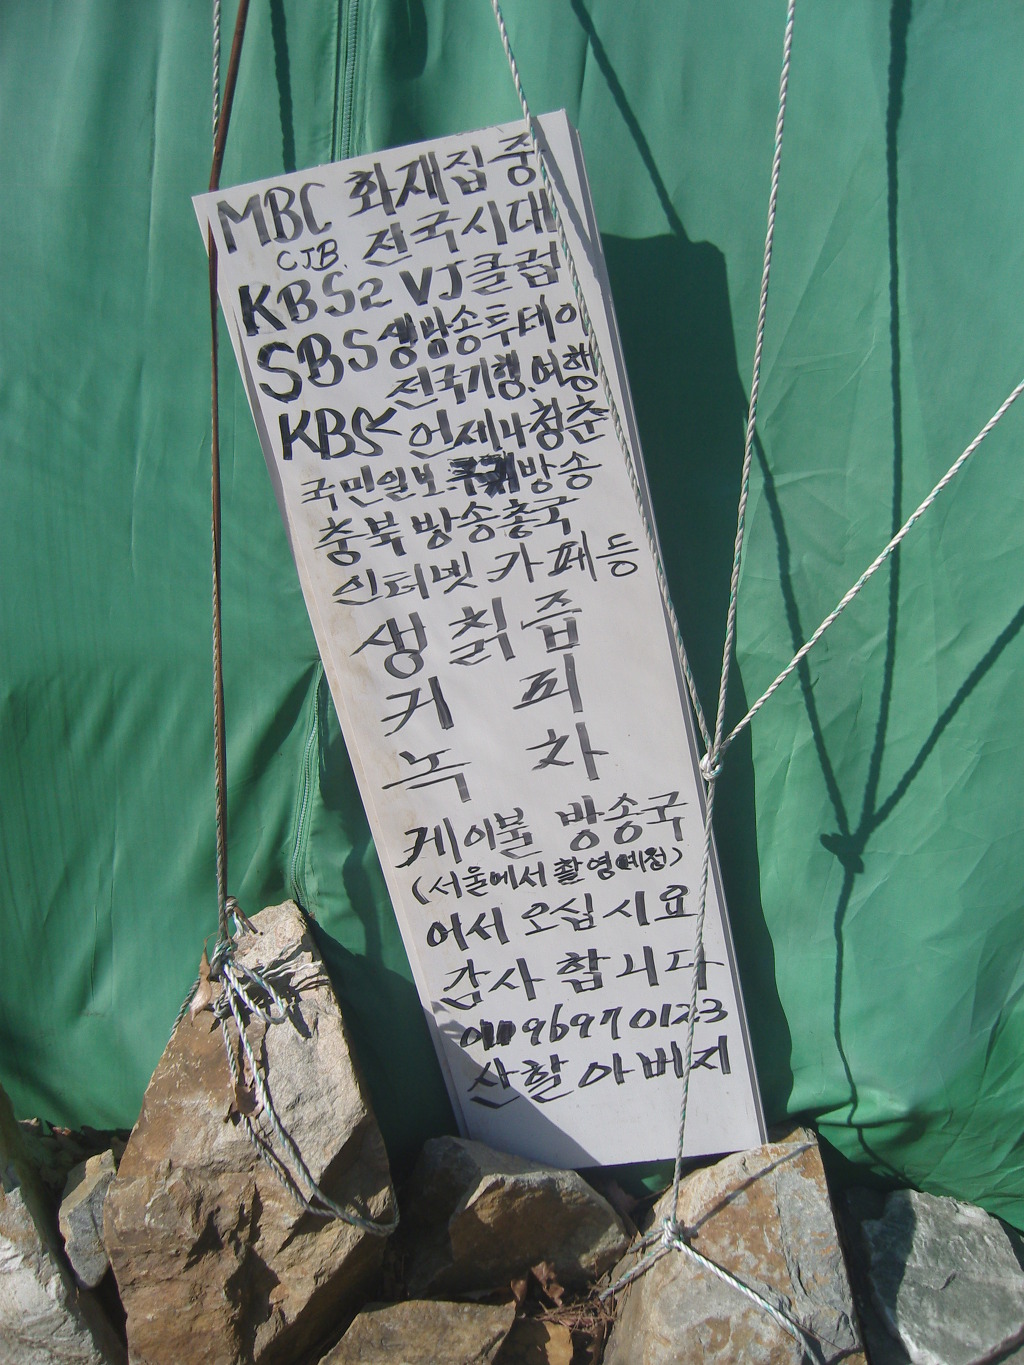 MBC 화재집중
CJB. 전국시대
KBS2 VJ클럽
SBS 생방송투데이
전국기행.여행
KBS 언제나청춘
국민일보 쿠키방송
충북 방송총국
인터넷 카페등
생 칡 즙
커 피
녹 차
케이블 방송국
(서울에서 촬영예정)
어서 오십시요
감사합니다
010 9697 0123
산할아버지